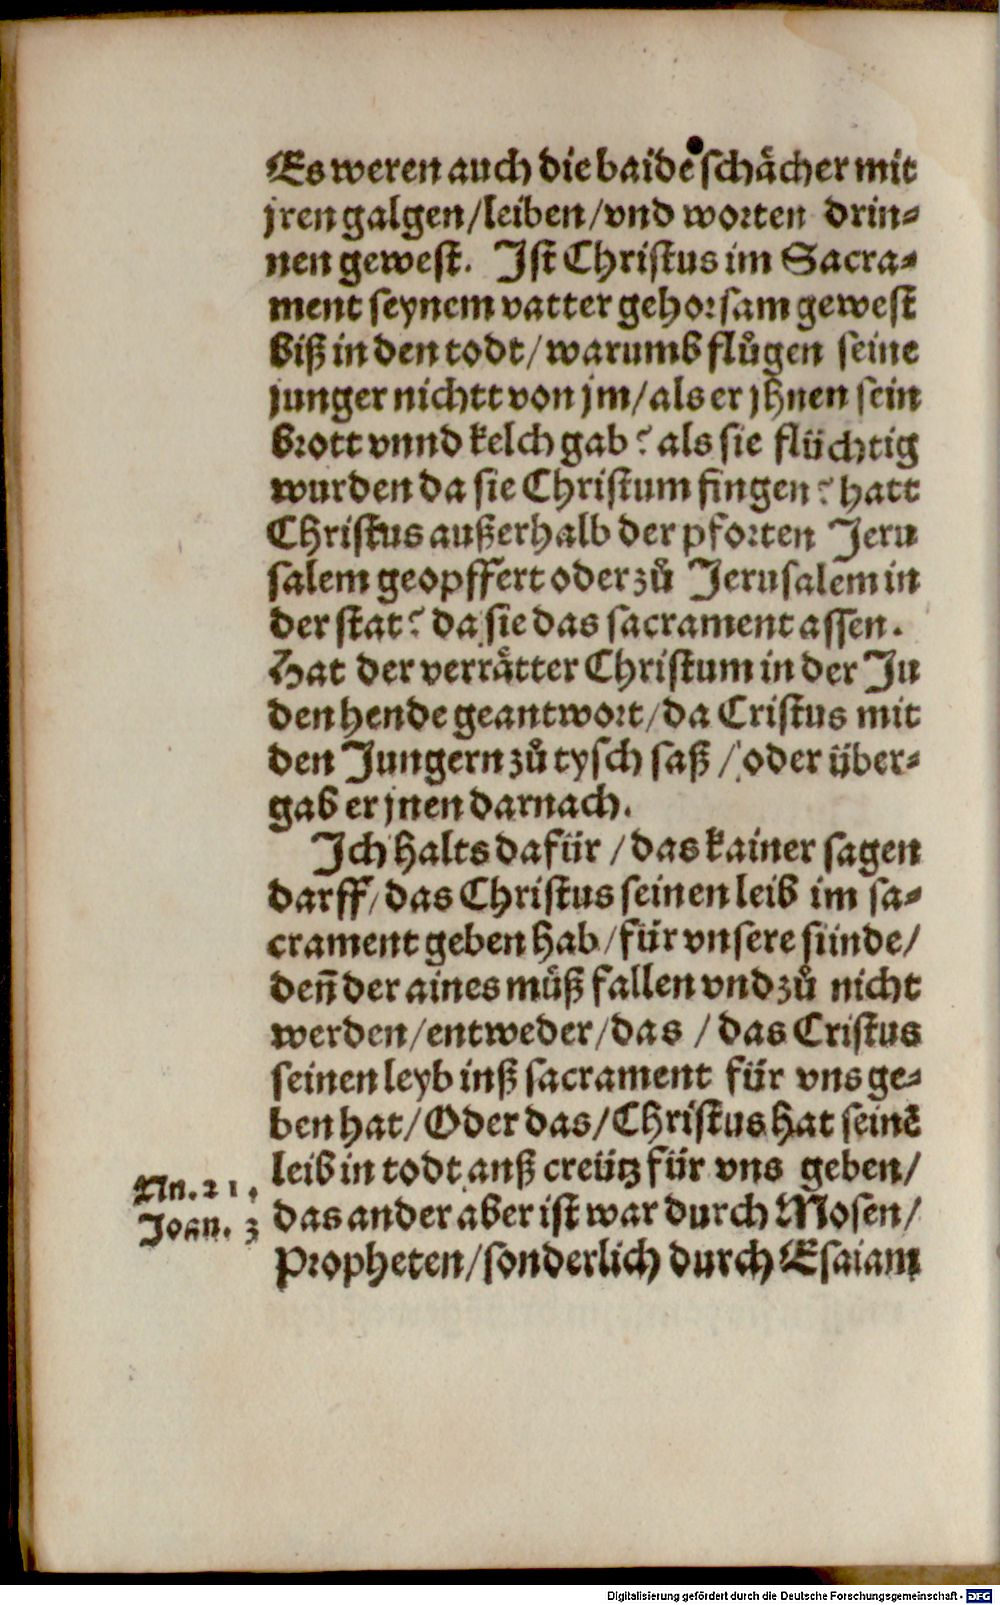 Es weren auch die baide schaͤcher mit
jren galgen/leiben/vnd worten drin-
nen gewest. Ist Christus im Sacra-
ment seynem vatter gehorsam gewest
biß in den todt/warumb fluͤgen seine
junger nichtt von jm/als er jhnen sein
brott vnnd kelch gab? als sie flüchtig
wurden da sie Christum fingen? hatt
Christus außerhalb der pforten Jeru
salem geopffert oder zů Jerusalem in
der stat? da sie das sacrament assen.
Hat der verraͤtter Christum in der Ju
den hende geantwort/da Cristus mit
den Jungern zů tysch saß/oder über-
gab er jnen darnach.
Ich halts dafür/das kainer sagen
darff/das Christus seinen leib im sa-
crament geben hab/für vnsere sünde/
deñ der aines muͤß fallen vnd zů nicht
werden/entweder/das/das Cristus
seinen leyb inß sacrament für vns ge-
ben hat/Oder das/Christus hat seinē
leib in todt anß creütz für vns geben/
Nu. 21.
Joan. 3
das ander aber ist war durch Mosen/
Propheten/sonderlich durch Esaiam
Digitalisierung gefördert durch die Deutsche Forschungsgemeinschaft - DFG